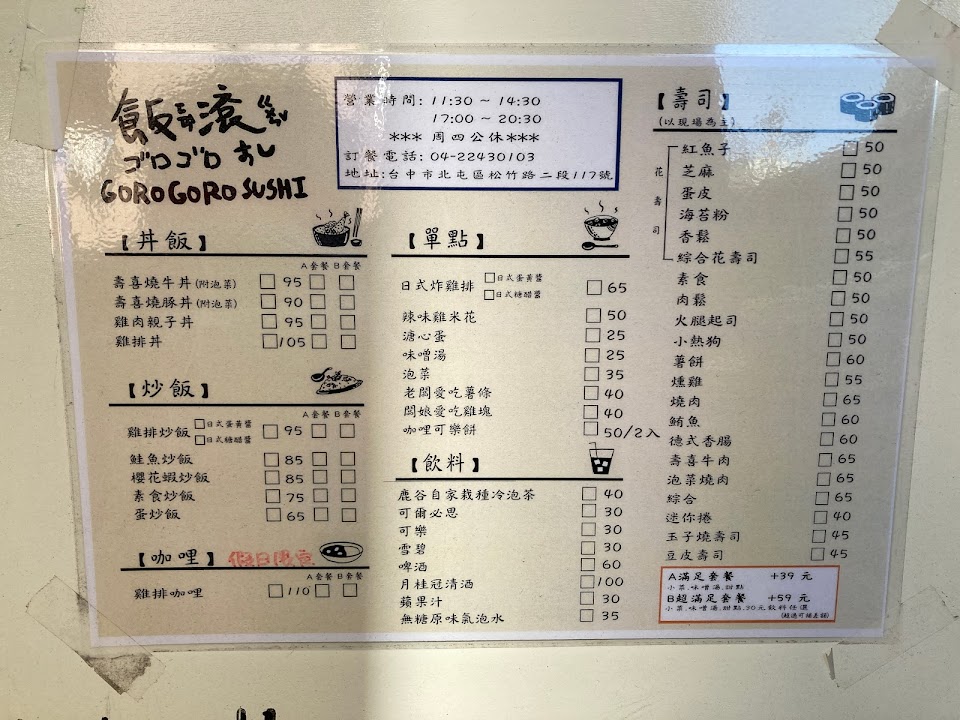 飯 滾
ゴロゴロ すし
GORO GORO SUSHI
營業時間: 11:30 ~ 14:30
17:00 ~ 20:30
*** 周四公休***
訂餐電話: 04-22430103
地址:台中市北屯區松竹路二段117號
【丼飯】
A套餐 B套餐
壽喜燒牛丼(附泡菜) □ 95 □ □
壽喜燒豚丼(附泡菜) □ 90 □ □
雞肉親子丼 □ 95 □ □
雞排丼 □ 105 □ □
【炒飯】
A套餐 B套餐
雞排炒飯 □日式蛋黃醬 □日式糖醋醬 □ 95 □ □
鮭魚炒飯 □ 85 □ □
櫻花蝦炒飯 □ 85 □ □
素食炒飯 □ 75 □ □
蛋炒飯 □ 65 □ □
【咖哩】 假日限定
A套餐 B套餐
雞排咖哩 □ 110 □ □
【單點】
日式炸雞排 □日式蛋黃醬 □日式糖醋醬 □ 65
辣味雞米花 □ 50
溏心蛋 □ 25
味噌湯 □ 25
泡菜 □ 35
老闆愛吃薯條 □ 40
闆娘愛吃雞塊 □ 40
咖哩可樂餅 □ 50/2入
【飲料】
鹿谷自家栽種冷泡茶 □ 40
可爾必思 □ 30
可樂 □ 30
雪碧 □ 30
啤酒 □ 60
月桂冠清酒 □ 100
蘋果汁 □ 30
無糖原味氣泡水 □ 35
【壽司】
(以現場為主)
花壽司
紅魚子 □ 50
芝麻 □ 50
蛋皮 □ 50
海苔粉 □ 50
香鬆 □ 50
綜合花壽司 □ 55
素食 □ 50
肉鬆 □ 50
火腿起司 □ 50
小熱狗 □ 50
薯餅 □ 60
燻雞 □ 55
燒肉 □ 65
鮪魚 □ 60
德式香腸 □ 60
壽喜牛肉 □ 65
泡菜燒肉 □ 65
綜合 □ 65
迷你捲 □ 40
玉子燒壽司 □ 45
豆皮壽司 □ 45
A滿足套餐 +39 元
小菜.味噌湯.甜點
B超滿足套餐 +59 元
小菜.味噌湯.甜點.30元飲料任選
(超過可補差額)